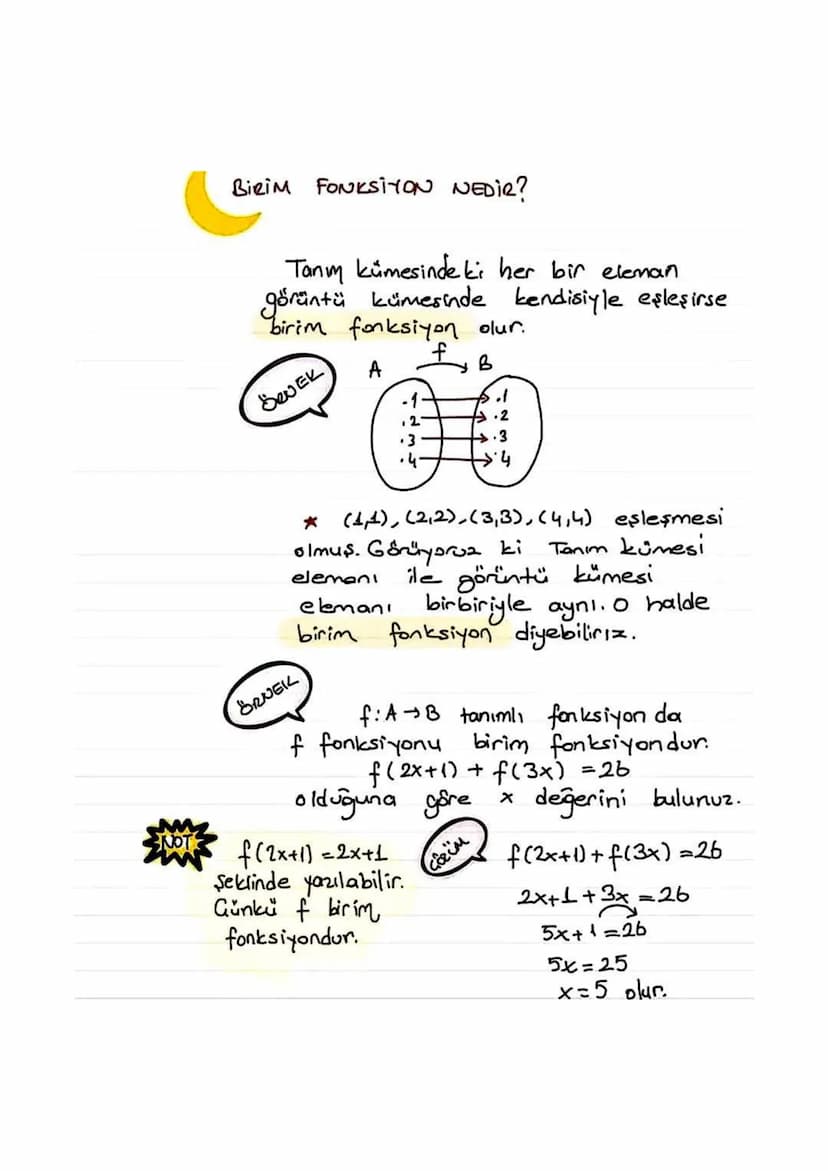 BİRİM FONKSİYON NEDİR?
Tanım kümesindeki her bir eleman
görüntü kümesinde kendisiyle eşleşirse
birim fonksiyon olur.
ÖRNEK
f
A B
.1 .1
.2 .2
.3 .3
.4 .4
* (1,1), (2,2), (3,3), (4,4) eşleşmesi
olmuş. Görüyoruz ki Tanım kümesi
elemanı ile görüntü kümesi
elemanı birbiriyle aynı. O halde
birim fonksiyon diyebiliriz.
ÖRNEK
f: A → B tanımlı fonksiyon da
f fonksiyonu birim fonksiyondur.
f(2x+1) + f(3x) = 26
olduğuna göre x değerini bulunuz.
NOT
f(2x+1) = 2x+1
Şeklinde yazılabilir.
Çünkü f birim
fonksiyondur.
ÇÖZÜM
f(2x+1) + f(3x) = 26
2x+1 + 3x = 26
5x + 1 = 26
5x = 25
x = 5 olur.